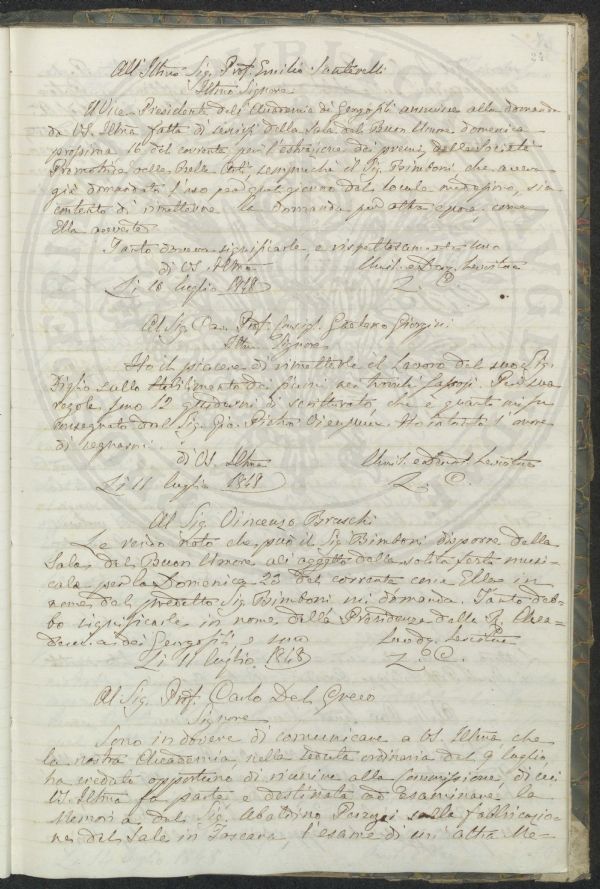 24
All'Illmo Sig. Prof. Emilio Santarelli
Illmo Signore
Il Vice-Presidente dell'Accademia dei Georgofili annuisce alla domanda
da VS. Illma fatta di servirsi della Sala del Buon Umore domenica
prossima 16 del corrente per l'estrazione dei premi della Società
Promotrice delle Belle Arti semprechè il Sig. Bimboni, che aveva
già domandato l'uso per quel giorno del locale medesimo, sia
contento di rimettere la domanda per altra epoca, come
Ella avverte
Tanto doveva significarle, e rispettosamente sono
di VS. Illma
Li 10 luglio 1848
Al Sig. Cav. Prof. Consigl. Gaetano Giorgini
Illmo Signore
Ho il piacere di rimetterle il Lavoro del suo Sig.
Figlio sullo stabilimento dei fiumi
regole, sono 12 quaderni di scritturato, che è quanto mi fu
consegnato dal Sig. Gio. Pietro Vieusseux. Ho intanto l'onore
di segnarmi
di VS. Illma
Li 11 luglio 1848
Al Sig. Vincenzo Bruschi
Le rendo noto che può il Sig. Bimboni disporre della
Sala del Buon Umore all'oggetto della solita festa musi-
cale per la Domenica 23 del corrente come Ella in
nome del predetto Sig. Bimboni mi domanda. Tanto deb-
bo significarle in nome della Presidenza della R. Acca-
demia dei Georgofili, e sono
Li 11 luglio 1848
Al Sig. Prof. Carlo Del Greco
Signore
Sono in dovere di comunicare a VS. Illma che
la nostra Accademia, nella seduta ordinaria del 9 luglio,
ha creduto opportuno di riunire alla Commissione, di cui
VS. Illma fa parte e destinata ad esaminare la
Memoria del Sig. Abaldino Peruzzi sulla fabbricazio-
ne del Sale in Toscana, l'esame di un'altra Me-